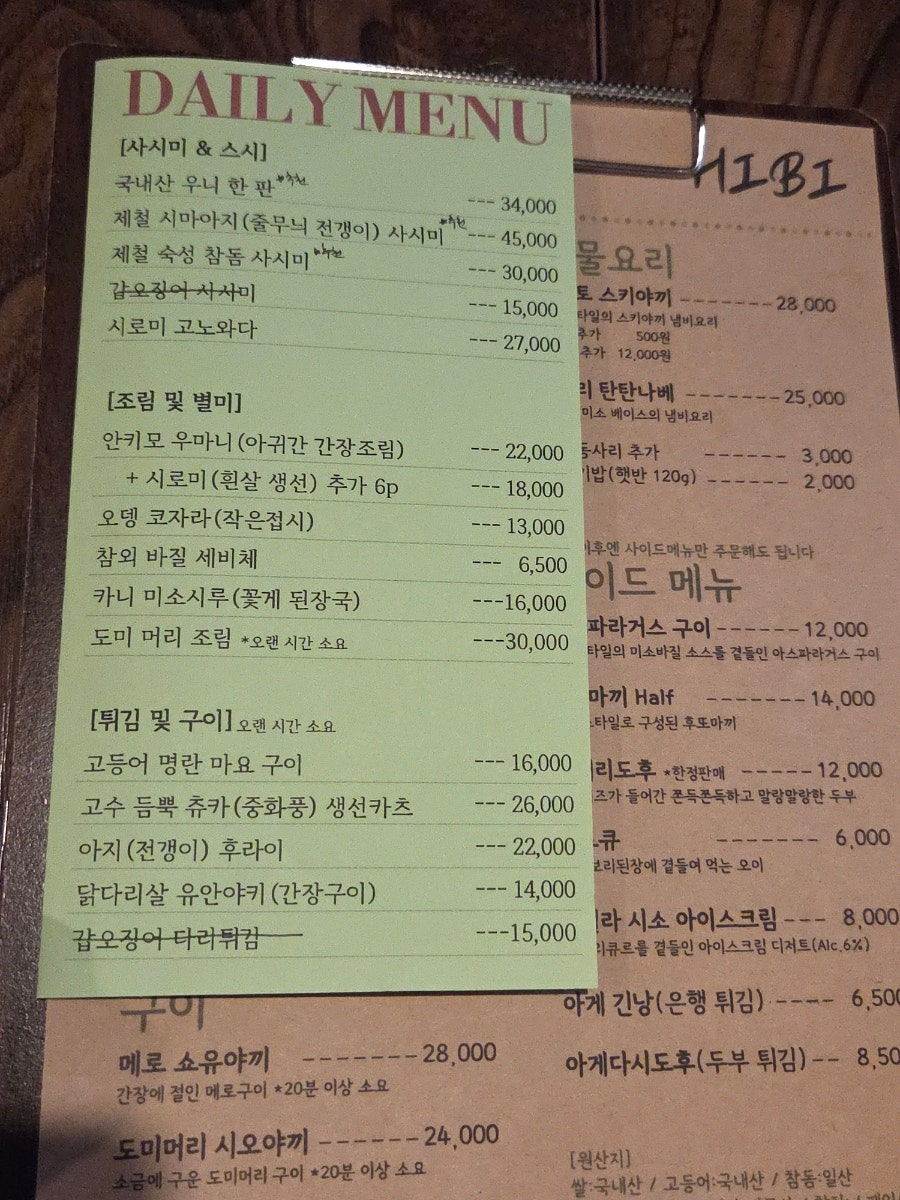 DAILY MENU
[사시미 & 스시]
국내산 우니 한 판 *추천 --- 34,000
제철 시마아지(줄무늬 전갱이) 사시미 *추천 --- 45,000
제철 숙성 참돔 사시미 *추천 --- 30,000
갑오징어 사시미 --- 15,000
시로미 고노와다 --- 27,000
[조림 및 별미]
안키모 우마니(아귀간 간장조림) --- 22,000
+ 시로미(흰살 생선) 추가 6p --- 18,000
오뎅 코자라(작은접시) --- 13,000
참외 바질 세비체 --- 6,500
카니 미소시루(꽃게 된장국) ---16,000
도미 머리 조림 *오랜 시간 소요 ---30,000
[튀김 및 구이] 오랜 시간 소요
고등어 명란 마요 구이 --- 16,000
고수 듬뿍 츄카(중화풍) 생선카츠 --- 26,000
아지(전갱이) 후라이 --- 22,000
닭다리살 유안야키(간장구이) --- 14,000
갑오징어 다리튀김 ---15,000
구이
메로 쇼유야끼 ------- 28,000
간장에 절인 메로구이 *20분 이상 소요
도미머리 시오야끼 ------ 24,000
소금에 구운 도미머리 구이 *20분 이상 소요
HIBI
물요리
스키야끼 ------- 28,000
타일의 스키야끼 냄비요리
추가 500원
추가 12,000원
탄탄나베 ------- 25,000
미소 베이스의 냄비요리
동사리 추가 ------ 3,000
기밥(햇반 120g) ------ 2,000
이후엔 사이드메뉴만 주문해도 됩니다
이드 메뉴
파라거스 구이 ------ 12,000
타일의 미소바질 소스를 곁들인 아스파라거스 구이
마끼 Half ------- 14,000
스타일로 구성된 후또마끼
리도후 *한정판매 ----- 12,000
즈가 들어간 쫀득쫀득하고 말랑말랑한 두부
큐 ------- 6,000
보리된장에 곁들여 먹는 오이
라 시소 아이스크림 --- 8,000
리큐르를 곁들인 아이스크림 디저트(Alc.6%)
아게 긴낭(은행 튀김) ---- 6,500
아게다시도후(두부 튀김) -- 8,50
[원산지]
쌀:국내산 / 고등어:국내산 / 참돔:일산